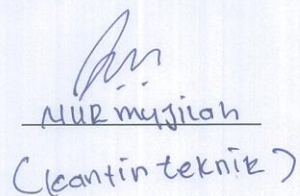 NUR mujilah
(kantin teknik)